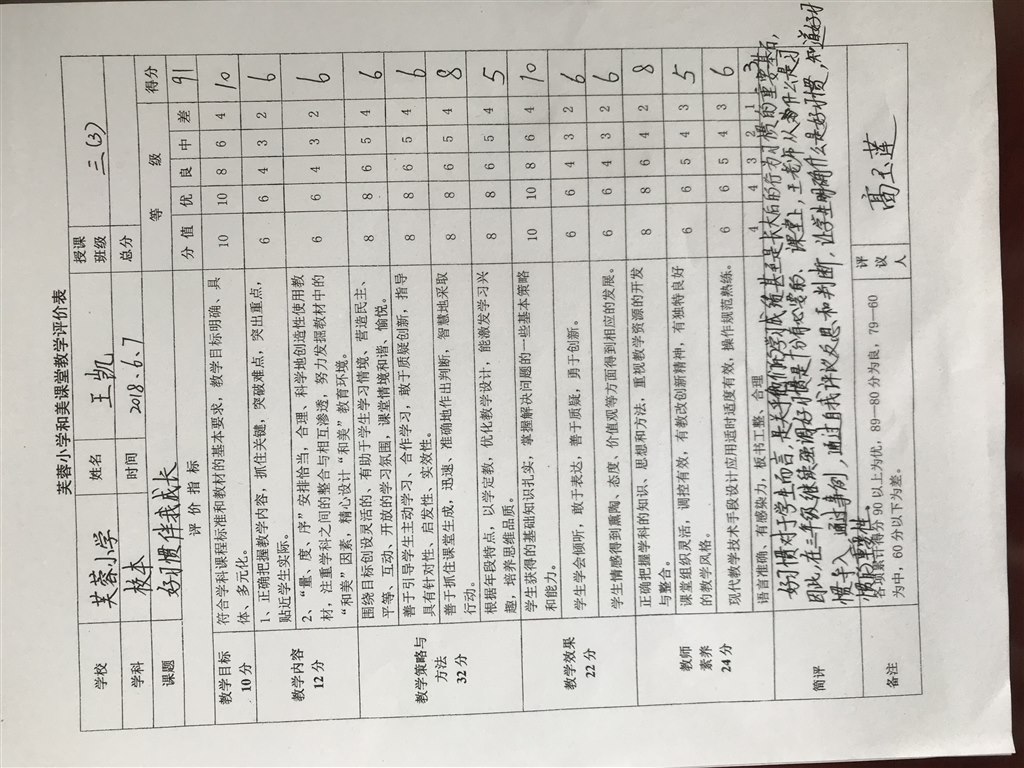 芙蓉小学和美课堂教学评价表
学校 芙蓉小学 姓名 王凯 授课班级 三(3)
学科 校本 时间 2018.6.7 总分 91
课题 好习惯伴我成长
评价指标 分值 等级 得分
优 良 中 差
教学目标 10分
符合学科课程标准和教材的基本要求，教学目标明确、具
体、多元化。 10 10 8 6 4 10
教学内容 12分
1、正确把握教学内容，抓住关键，突破难点，突出重点，
贴近学生实际。 6 6 4 3 2 6
2、“量、度、序”安排恰当，合理、科学地创造性使用教
材，注重学科之间的整合与相互渗透，努力发掘教材中的
“和美”因素，精心设计“和美”教育环境。 6 6 4 3 2 6
教学策略与方法 32分
围绕目标创设灵活的、有助于学生学习情境、营造民主、
平等、互动、开放的学习氛围，课堂情境和谐、愉悦。 8 8 6 5 4 6
善于引导学生主动学习、合作学习，敢于质疑创新，指导
具有针对性、启发性、实效性。 8 8 6 5 4 6
善于抓住课堂生成，迅速、准确地作出判断，智慧地采取
行动。 8 8 6 5 4 8
根据年段特点，以学定教，优化教学设计，能激发学习兴
趣，培养思维品质。 8 8 6 5 4 5
教学效果 22分
学生获得的基础知识扎实，掌握解决问题的一些基本策略
和能力。 10 10 8 6 4 10
学生学会倾听，敢于表达，善于质疑，勇于创新。 6 6 4 3 2 6
学生情感得到熏陶、态度、价值观等方面得到相应的发展。 6 6 4 3 2 6
教师素养 24分
正确把握学科的知识、思想和方法，重视教学资源的开发
与整合。 8 8 6 4 2 8
课堂组织灵活，调控有效，有教改创新精神，有独特良好
的教学风格。 6 6 5 4 3 5
现代教学技术手段设计应用适时适度有效，操作规范熟练。 6 6 5 4 3 6
语言准确、有感染力，板书工整、合理 4 4 3 2 1 3
简评
好习惯对于学生而言，是关乎他们的学习成绩甚至是长大后的行为习惯的重要基石，
即此，在三年级继续强调好习惯是十分有必要的、课堂上，王老师从为什么是习
惯导入，通过事例，通过自我评议反思和判断，让学生明确什么是好习惯，知道好习
惯的重要性。
备注
各项累计得分90以上为优，89—80分为良，79—60
为中，60分以下为差。
评议人 高玉莲